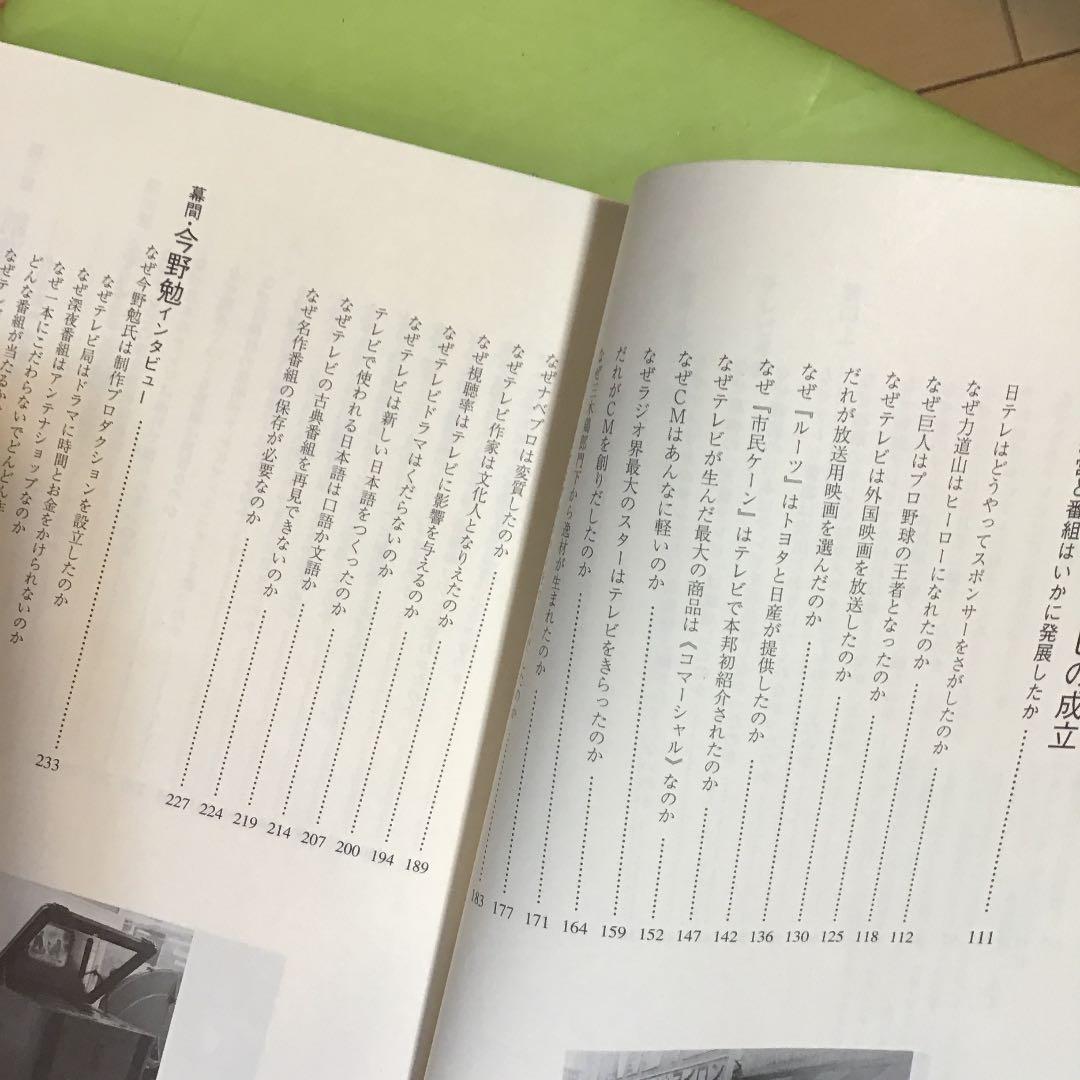 の成立
番組はいかに発展したか……111
日テレはどうやってスポンサーをさがしたのか……112
なぜ力道山はヒーローになれたのか……118
なぜ巨人はプロ野球の王者となったのか……125
なぜテレビは外国映画を放送したのか……130
だれが放送用映画を選んだのか……136
なぜ『ルーツ』はトヨタと日産が提供したのか……142
なぜ『市民ケーン』はテレビで本邦初紹介されたのか……147
なぜテレビが生んだ最大の商品は《コマーシャル》なのか……152
なぜCMはあんなに軽いのか……159
なぜラジオ界最大のスターはテレビをきらったのか……164
だれがCMを創りだしたのか……171
なぜ三木鶏郎門下から逸材が生まれたのか……177
183
なぜナベプロは変質したのか……189
なぜテレビ作家は文化人となりえたのか……194
なぜ視聴率はテレビに影響を与えるのか……200
なぜテレビドラマはくだらないのか……207
なぜテレビは新しい日本語をつくったのか……214
テレビで使われる日本語は口語か文語か……219
なぜテレビの古典番組を再見できないのか……224
なぜ名作番組の保存が必要なのか……227
幕間・今野勉インタビュー
なぜ今野勉氏は制作プロダクションを設立したのか……233
なぜテレビ局はドラマに時間とお金をかけられないのか
なぜ深夜番組はアンテナショップなのか
なぜ一本にこだわらないでどんどん
どんな番組が当たるか
なぜテレビ